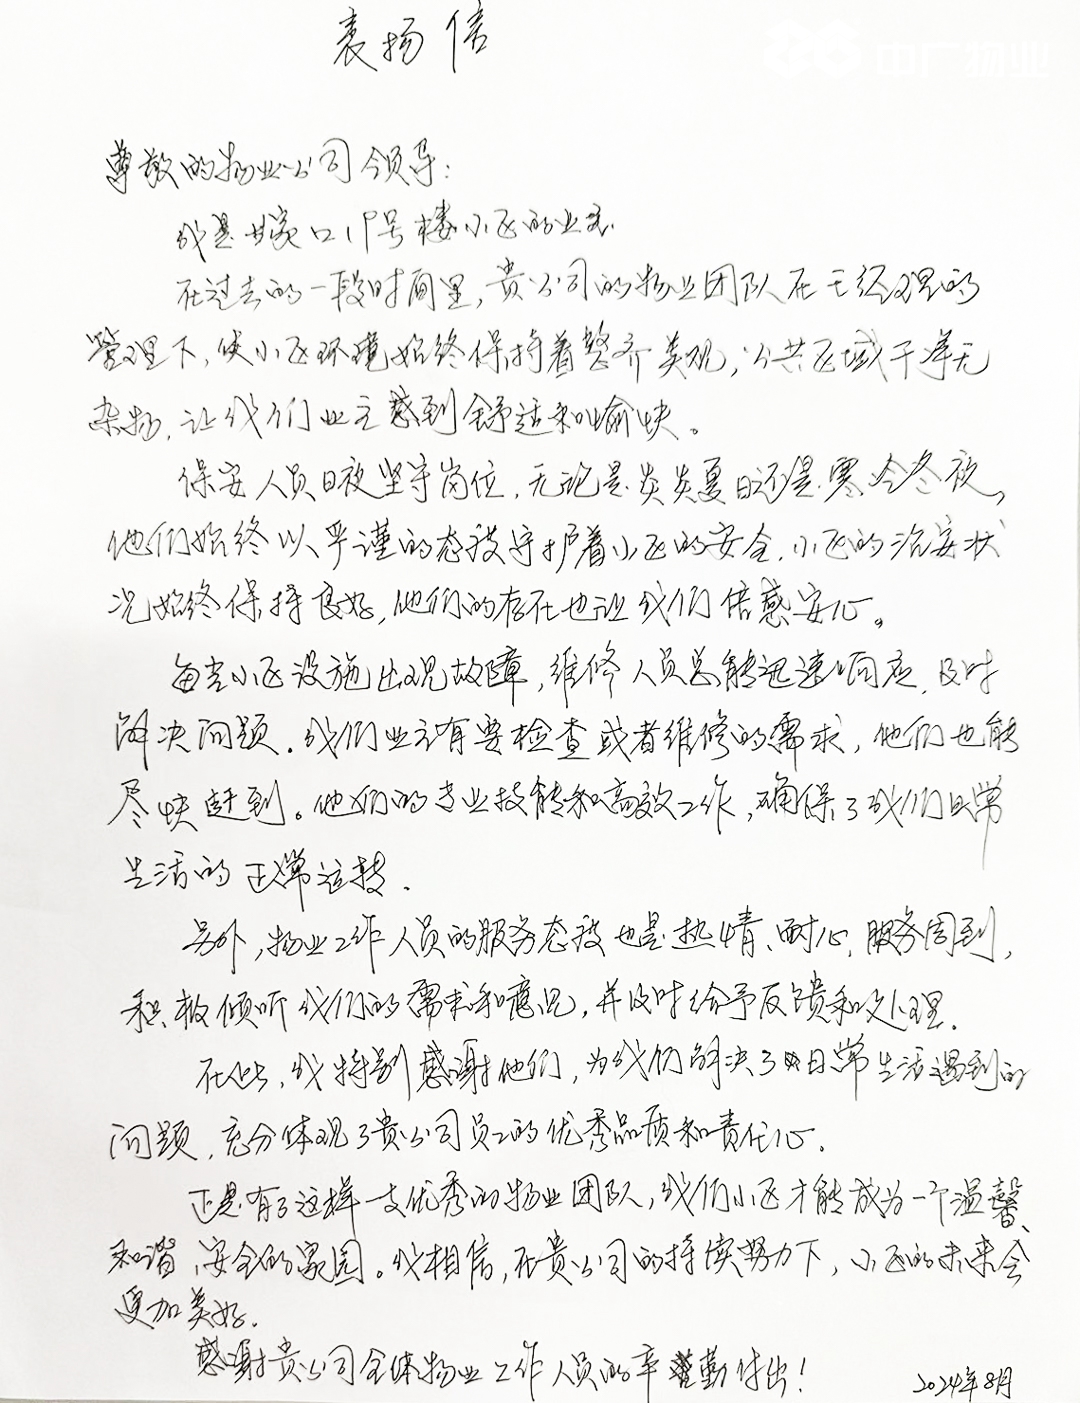 中广物业
表扬信
尊敬的物业公司领导：
我是甘家口19号楼小区的业主
在过去的一段时间里，贵公司的物业团队在王经理的
管理下，使小区环境始终保持着整齐美观，公共区域干净无
杂物，让我们业主感到舒适和愉快。
保安人员日夜坚守岗位，无论是炎炎夏日还是寒冷冬夜，
他们始终以严谨的态度守护着小区的安全，小区的治安状
况始终保持良好，他们的存在也让我们倍感安心。
每当小区设施出现故障，维修人员总能迅速响应，及时
解决问题。我们业主有要检查或者维修的需求，他们也能
尽快赶到。他们的专业技能和高效工作，确保了我们日常
生活的正常运转。
另外，物业工作人员的服务态度也是热情、耐心，服务周到，
积极倾听我们的需求和意见，并及时给予反馈和处理。
在此，我特别感谢他们，为我们解决了日常生活遇到的
问题，充分体现了贵公司员工的优秀品质和责任心。
正是有了这样一支优秀的物业团队，我们小区才能成为一个温馨、
和谐、安全的家园。我相信，在贵公司的持续努力下，小区的未来会
更加美好。
感谢贵公司全体物业工作人员的辛勤付出！
2024年8月